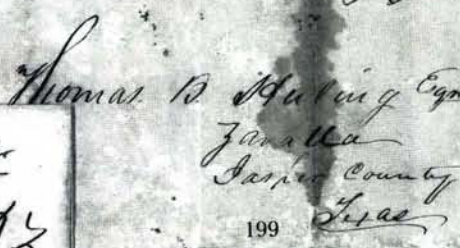 Thomas B Huling Eqr
Zavalla
Jasper County
Texas
199